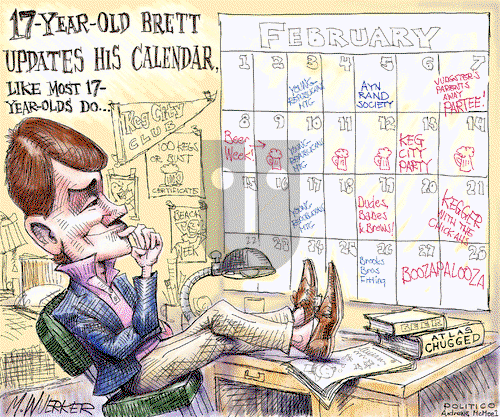 17-YEAR-OLD BRETT
UPDATES HIS CALENDAR,
LIKE MOST 17-
YEAR-OLDS DO...
Keg City
CLUB
100 KEGS
OR BUST
CERTIFICATE
BEACH
WEEK
FEBRUARY
1 2 3 4 5 6 7
YOUNG
REPUBLICAN
MTG
AYN
RAND
SOCIETY
JUDGSTER'S
PARENTS
AWAY
PARTEE!
8 9 10 11 12 13 14
Beer
Week!
YOUNG
REPUBLICAN
MTG
KEG
CITY
PARTY
15 16 17 18 19 20 21
YOUNG
REPUBLICAN
MTG
Dudes,
Babes
& Brews!
KEGGER
WITH THE
CHICKALS
22 23 24 25 26 27 28
Brooks
Bros
Fitting
BOOZAPALOOZA
BEER
ATLAS
CHUGGED
M. WUERKER
POLITICO